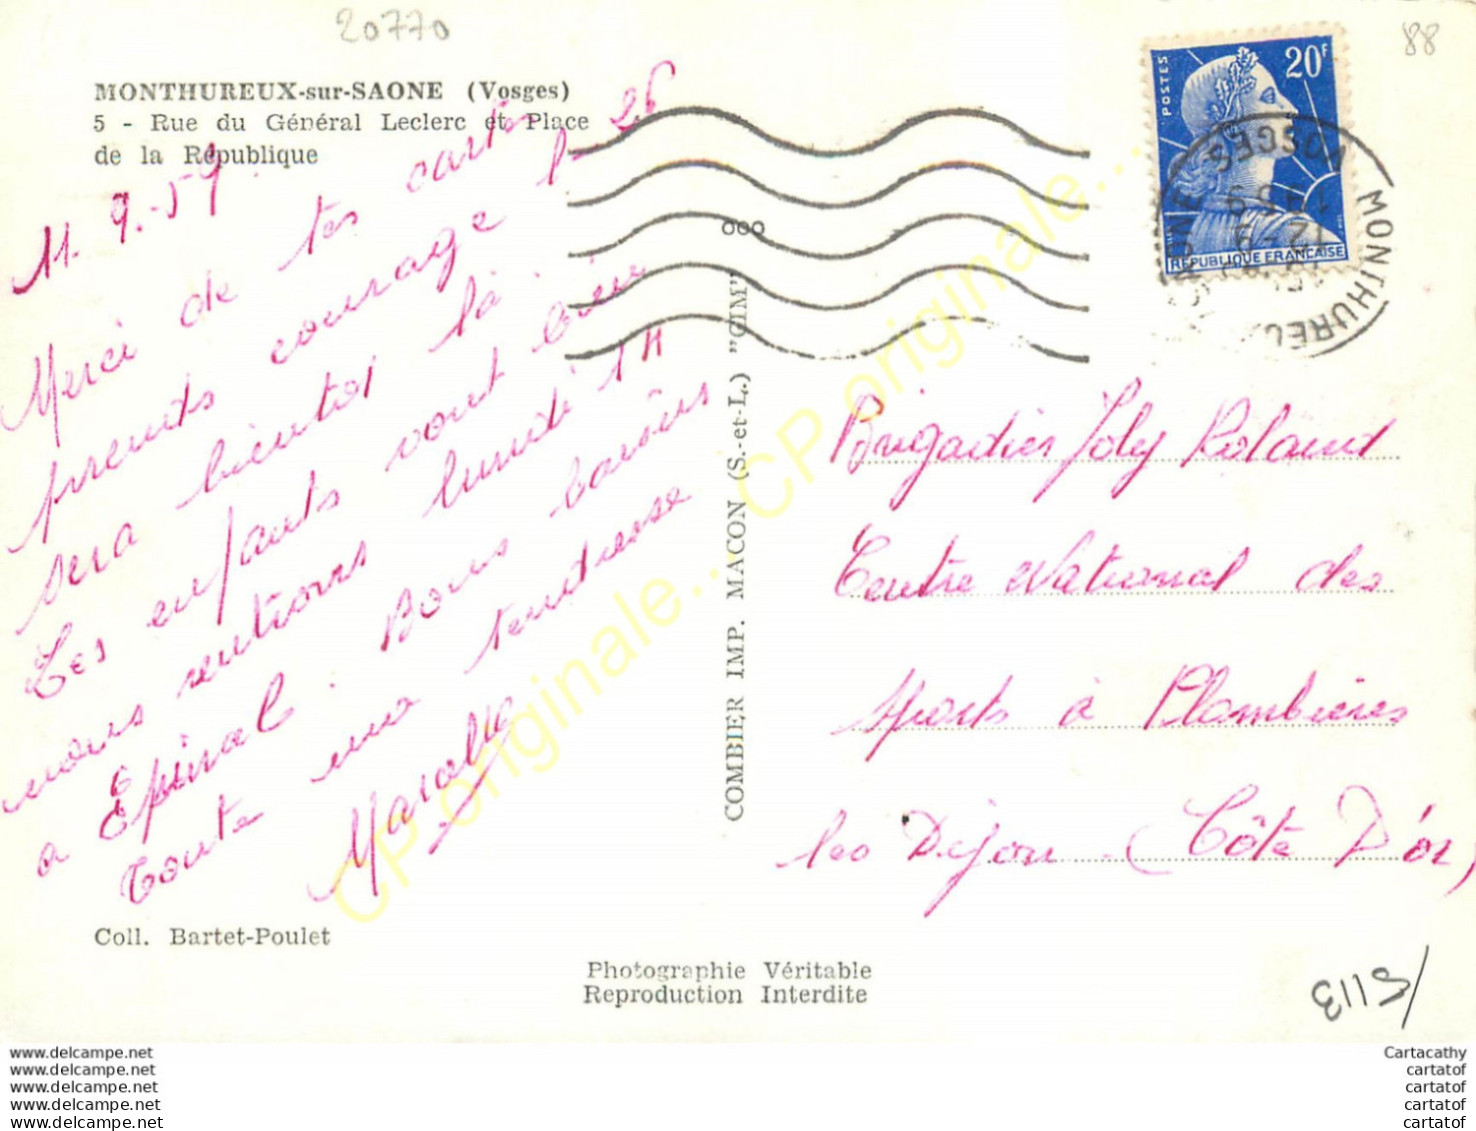 20770
88
MONTHUREUX-sur-SAONE (Vosges)
5 - Rue du Général Leclerc et Place
de la République
11.9.59
Merci de tes cartes
prends courage le 26
sera bientôt là.
Les enfants vont bien
nous rentrons lundi 14
a Epinal. Bons baisers
toute ma tendresse
Marcelle
Coll. Bartet-Poulet
COMBIER IMP. MACON (S.-et-L.) "CIM"
POSTES
20F
REPUBLIQUE FRANCAISE
MONTHUREUX
VOSGES
12-9
1959
Brigadier Joly Roland
Centre National des
sports à Plombières
les Dijon (Côte D'or)
Photographie Véritable
Reproduction Interdite
5113
CP originale... CP originale... CP originale...
www.delcampe.net
www.delcampe.net
www.delcampe.net
www.delcampe.net
www.delcampe.net
Cartacathy
cartatof
cartatof
cartatof
cartatof